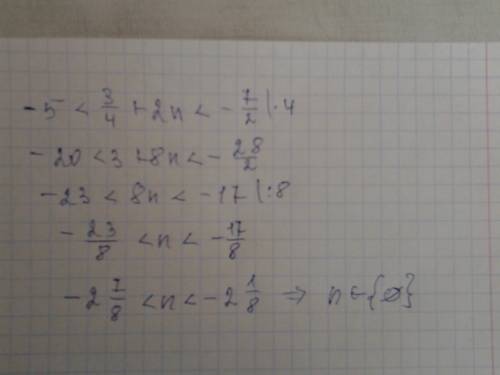 -5 < 3/4 + 2n < - 7/2 |·4
-20 < 3 + 8n < - 28/2
-23 < 8n < -17 |:8
- 23/8 < n < - 17/8
-2 7/8 < n < -2 1/8 ⇒ n ∈ {∅}